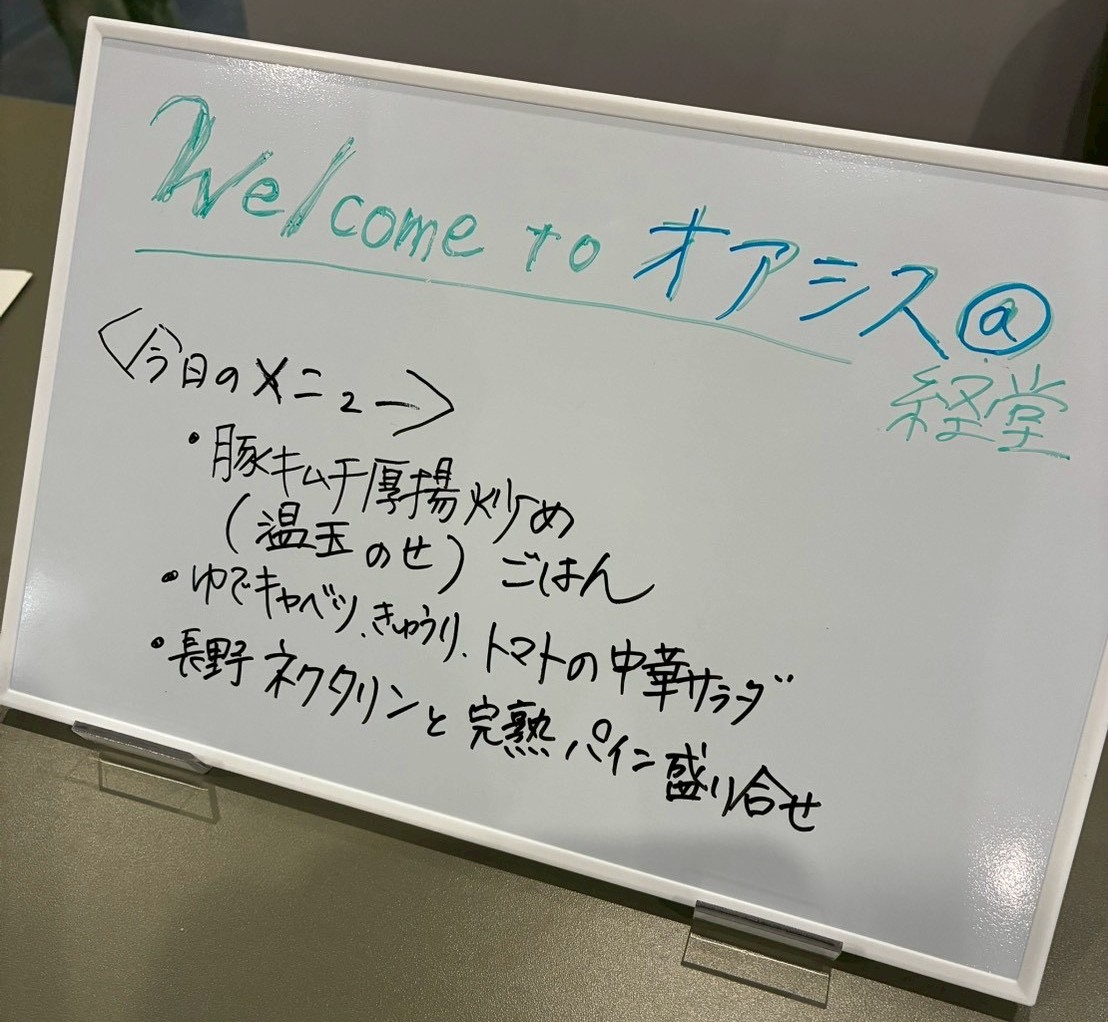 Welcome to オアシス@
経堂
〈今日のメニュー〉
・豚キムチ厚揚炒め
(温玉のせ)ごはん
・ゆでキャベツ、きゅうり、トマトの中華サラダ
・長野ネクタリンと完熟パイン盛り合せ